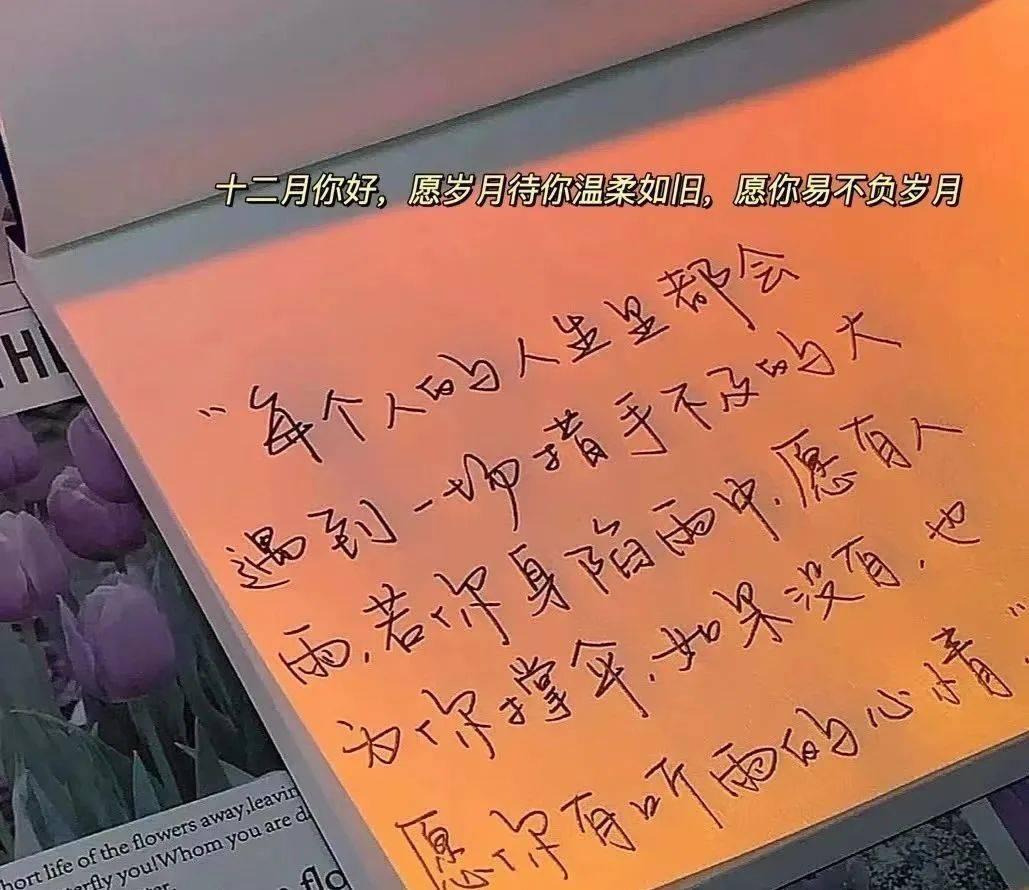 十二月你好，愿岁月待你温柔如旧，愿你易不负岁月
“每个人的人生里都会
遇到一场措手不及的大
雨，若你身陷雨中，愿有人
为你撑伞，如果没有，也
愿你有听雨的心情。”
TH
short life of the flowers away, leavin
terfly you!Whom you are d
flo